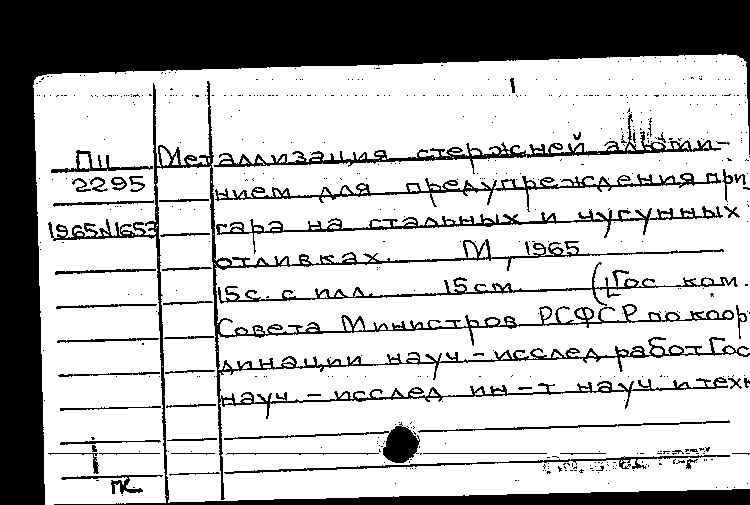 П11 Металлизация стержней алюми-
2295 нием для предупреждения при
1965N1653 гара на стальных и чугунных
отливках. М, 1965
15 с. с илл. 15 см. (Гос ком.
Совета Министров РСФСР по коор
динации науч.-исслед работ Гос
науч.-исслед ин-т науч. и техн